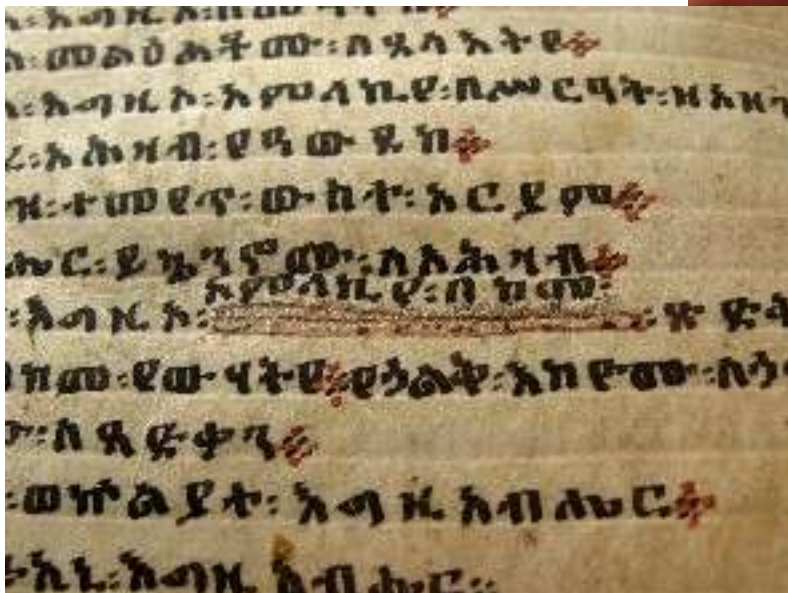 እግዚኦ፡በመዓትከ
መልዕልቶሙ፡ለጸላእትየ፨
እግዚኦ፡አምላኪየ፡በሥርዓት፡ዘአዘዝ
አሕዛብ፡የዓውደከ፨
ዝ፡ተመየጥ፡ውስተ፡አርያም፨
ሔር፡ይኴንኖሙ፡ለአሕዛብ፨
አምላኪየ፡በከመ፡
እግዚኦ፡ ፡ጽድቅ
በከመ፡የውሃትየ፨የኃልቅ፡እከዮሙ፡ለኃ
ለጻድቃን፨
፡ወኵልያተ፡እግዚአብሔር፨
እግዚአብሔር፡፡